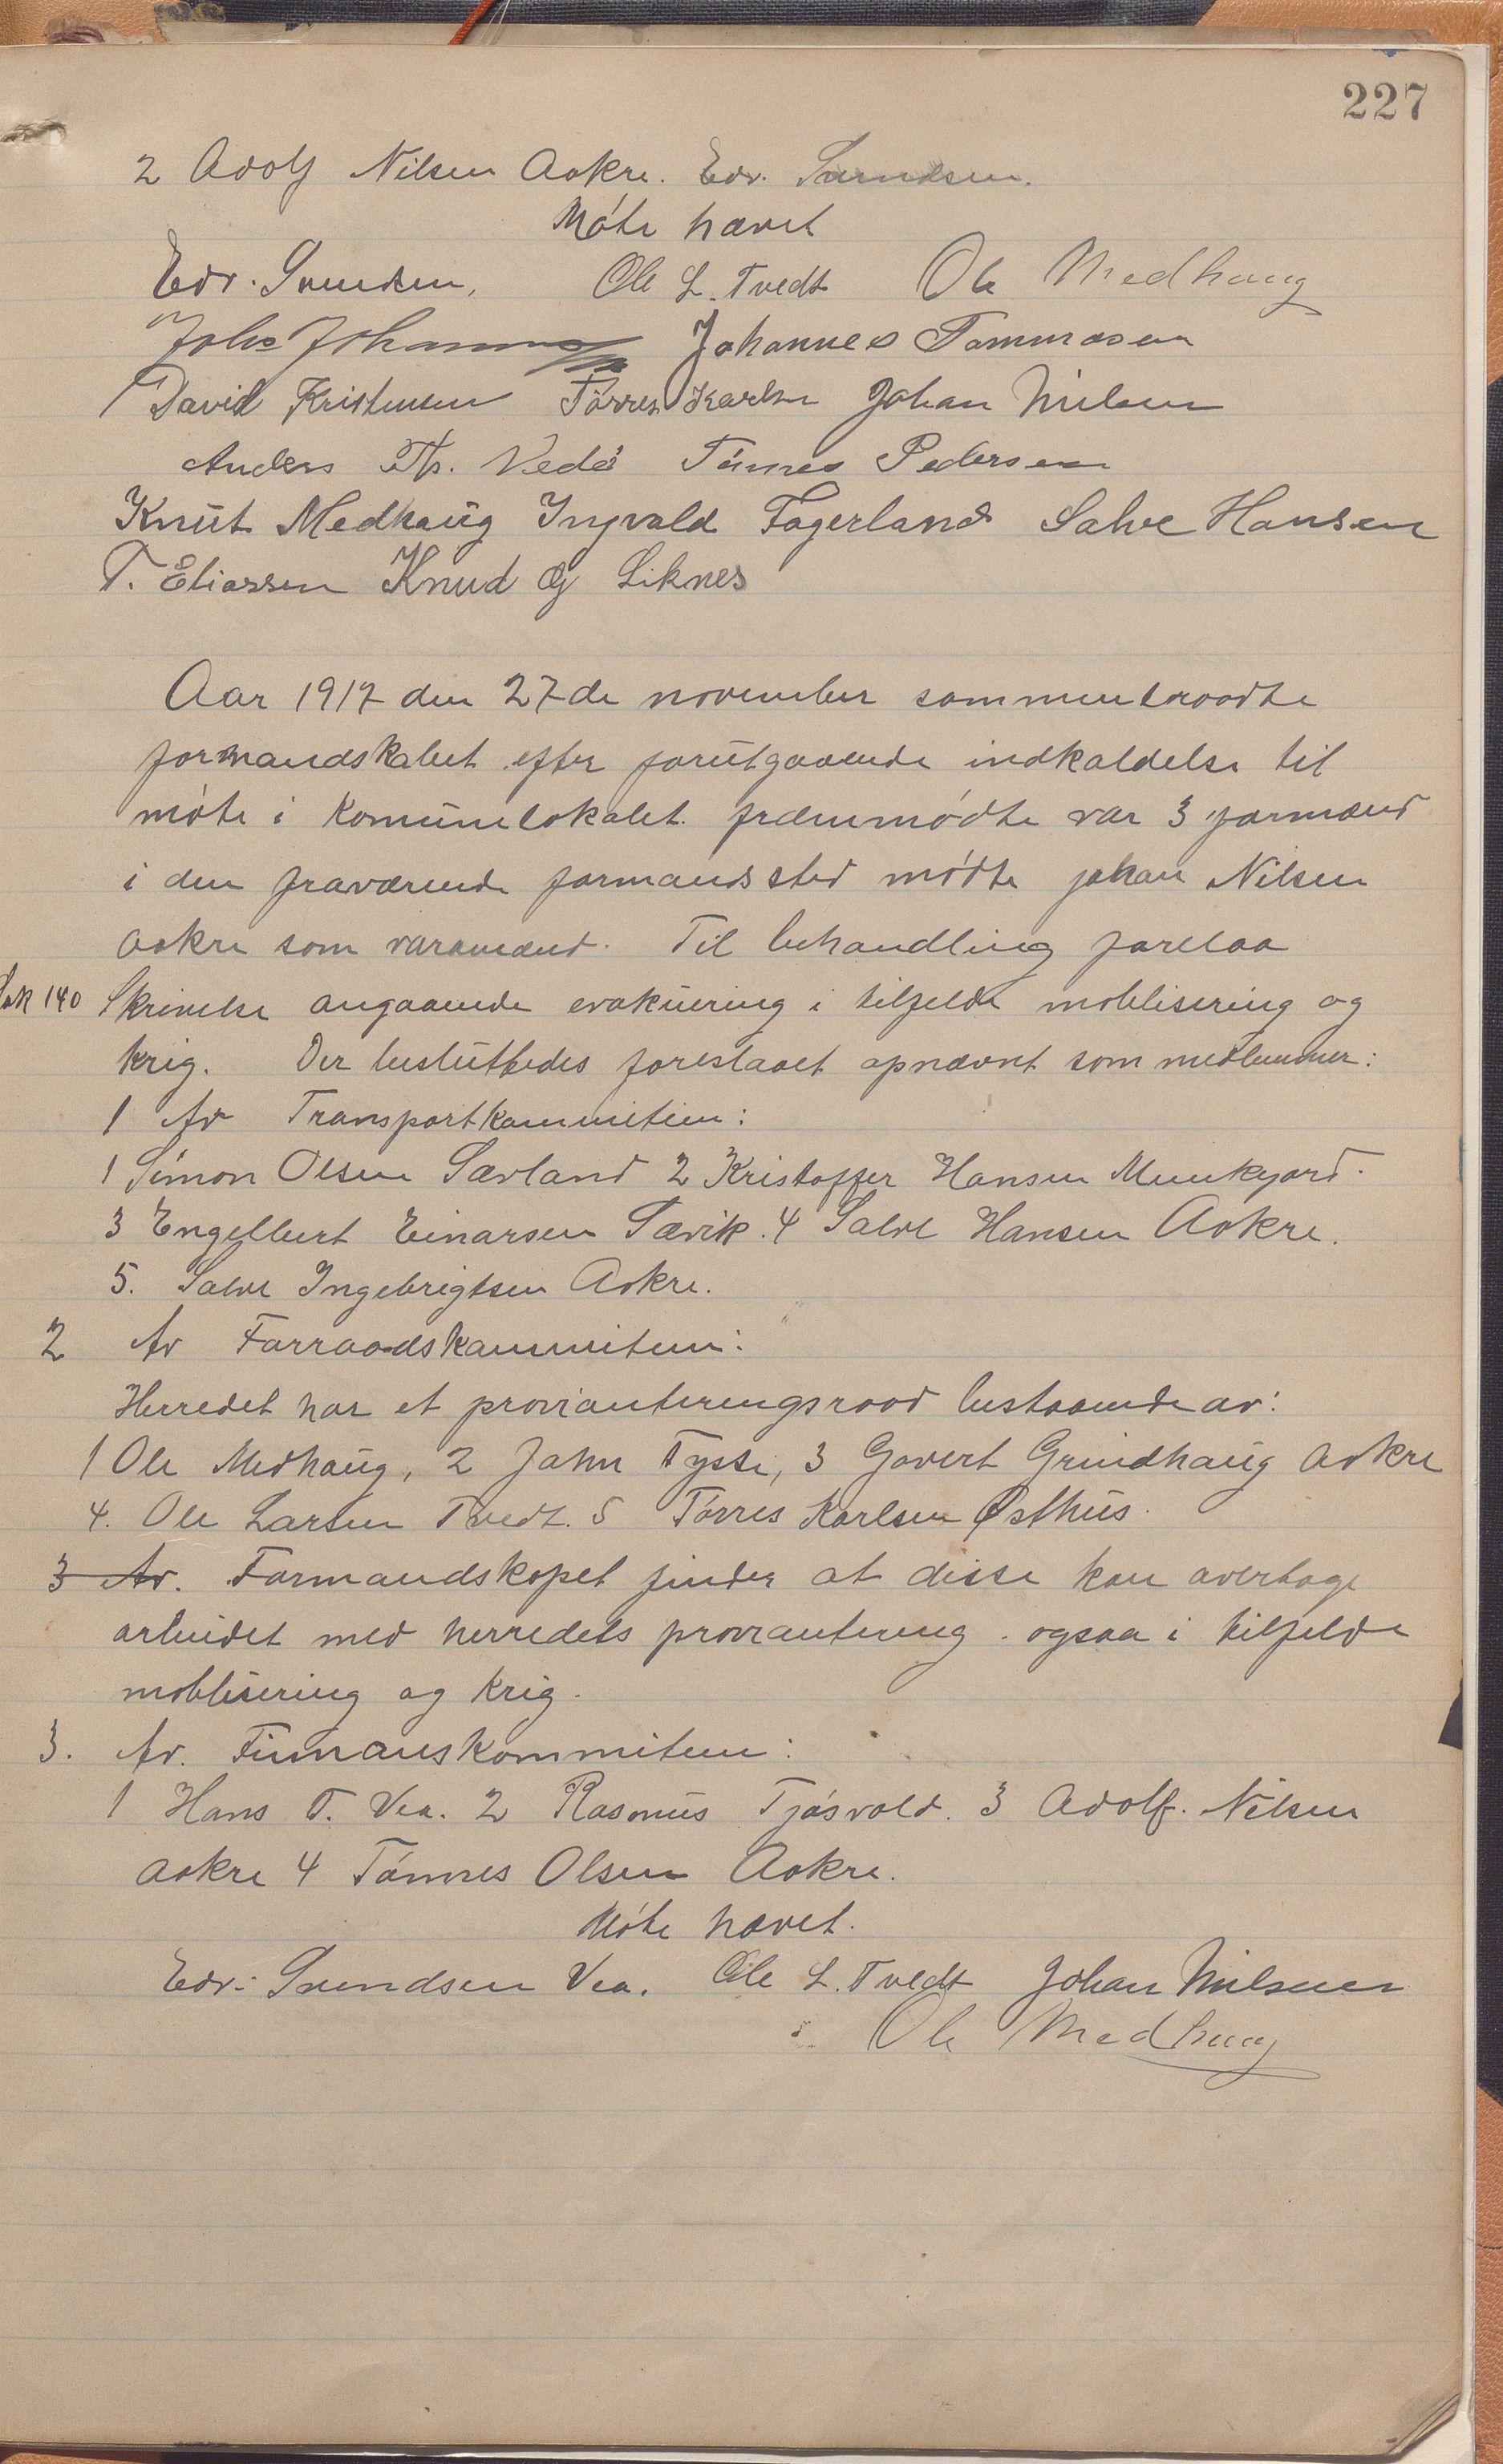 227
2 Adolf Nilsen Aakre. Edv. Svendsen.
Møte hævet
Edv. Svendsen, Ole L. Tvedt Ole Medhaug
Johs Johannesen Johannes Tommasen
David Kristensen Tørres Karlsen Johan Nilsen
Anders Th. Vedø Tønnes Pedersen
Knut Medhaug Ingvald Fagerland Salve Hansen
T. Eliassen Knud G Liknes
Aar 1917 den 27de november sammentraadte
formandskabet efter forutgaaende indkaldelse til
møte i Komunelokalet. fremmødte var 3 formænd
i den fraværende formands sted mødte johan Nilsen
Aakre som varamand. Til behandling forelaa
Sak 140 Skrivelse angaaende evakuering i tilfelde moblisering og
krig. Der besluttedes foreslaaet opnævnt som medlemmer:
1 Av Transportkommiteen:
1 Simon Olsen Sævland 2 Kristoffer Hansen Munkejord.
3 Engelbert Einarsen Sævik. 4 Salve Hansen Aakre.
5. Salve Ingebrigtsen Aakre.
2 Av Forraadskommiteen:
Herredet har et provianteringsraad bestaaende av:
1 Ole Medhaug, 2 John Tysse, 3 Govert Grindhaug Aakre
4. Ole Larsen Tvedt. 5 Tørres Karlsen Østhus.
3 Av. Formandskapet finder at disse kan overtage
arbeidet med herredets proviantering. ogsaa i tilfelde
moblisering og krig.
3. Av. Finnanskommiteen:
1 Hans T. Vea. 2 Rasmus Tjøsvold. 3 Adolf. Nilsen
Aakre 4 Tønnes Olsen Aakre.
Møte hævet.
Edv. Svendsen Vea. Ole L. Tvedt Johan Nilsen
Ole Medhaug